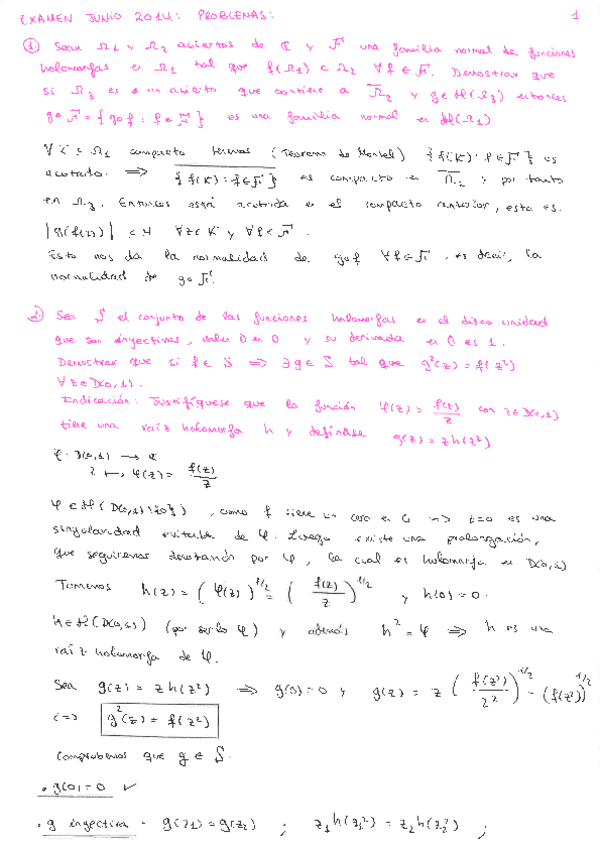 EXAMEN JUNIO 2014: PROBLEMAS: 1
① Sean Ω₁ y Ω₂ abiertos de ℂ y F una familia normal de funciones
holomorfas en Ω₁ tal que f(Ω₁) ⊂ Ω₂ ∀f∈F. Demostrar que
si Ω₃ es un abierto que contiene a Ω̅₂ y g∈H(Ω₃) entonces
g∘F = {g∘f : f∈F} es una familia normal en H(Ω₁)
∀K ⊂ Ω₁ compacto tenemos (Teorema de Montel) {f(K): f∈F} es
acotado. ⟹ \overline{{f(K): f∈F}} es compacto en Ω̅₂ y por tanto
en Ω₃. Entonces está acotada en el compacto anterior, esto es.
|g(f(z))| < M ∀z∈K y ∀f∈F.
Esto nos da la normalidad de g∘f ∀f∈F, es decir, la
normalidad de g∘F.
② Sea S el conjunto de las funciones holomorfas en el disco unidad
que son inyectivas, valen 0 en 0 y su derivada en 0 es 1.
Demostrar que si f∈S ⟹ ∃g∈S tal que g²(z) = f(z²)
∀z∈D(0,1).
Indicación: Justifíquese que la función φ(z) = f(z)/z con z∈D(0,1)
tiene una raíz holomorfa h y defínase g(z) = z h(z²)
φ: D(0,1) → ℂ
z ↦ φ(z) = f(z)/z
φ∈H(D(0,1)\{0}), como f tiene un cero en 0 ⟹ z=0 es una
singularidad evitable de φ. Luego existe una prolongación,
que seguiremos denotando por φ, la cual es holomorfa en D(0,1)
Tomemos h(z) = (φ(z))^{1/2} = (f(z)/z)^{1/2} y h(0) = 0.
h∈H(D(0,1)) (por serlo φ) y además h² = φ ⟹ h es una
raíz holomorfa de φ.
Sea g(z) = z h(z²) ⟹ g(0) = 0 y g(z) = z (f(z²)/z²)^{1/2} = (f(z²))^{1/2}
⟹ g²(z) = f(z²)
Comprobemos que g∈S.
• g(0) = 0 ✓
• g inyectiva - g(z₁) = g(z₂) ; z₁h(z₁²) = z₂h(z₂²) ;